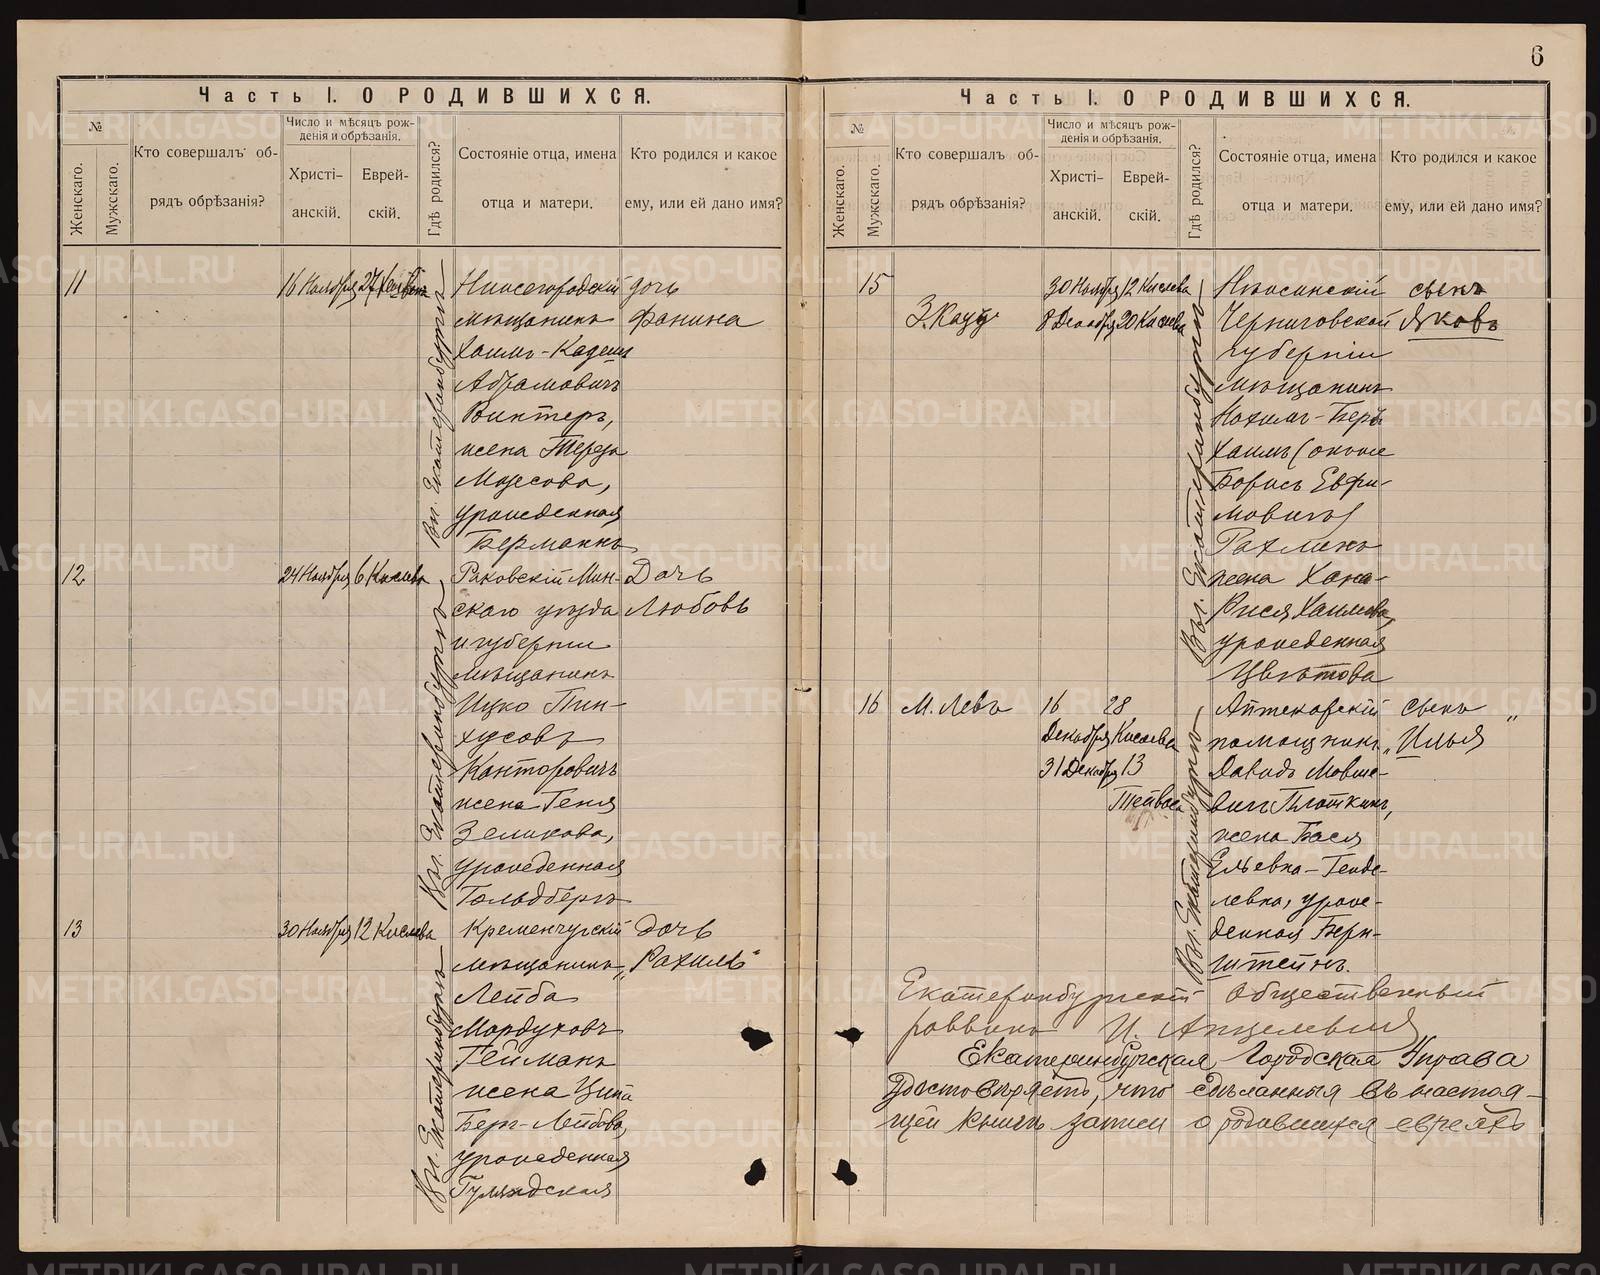 6
Часть I. О РОДИВШИХСЯ.
№
Женскаго.
Мужскаго.
Кто совершалъ об-
рядъ обрѣзанія?
Число и мѣсяцъ рож-
денія и обрѣзанія.
Христі-
анскій.
Еврей-
скій.
Гдѣ родился?
Состояніе отца, имена
отца и матери.
Кто родился и какое
ему, или ей дано имя?
11
16 Ноября 27
Въ г. Екатеринбургѣ
Нижегородскій
мѣщанинъ
Хаимъ-Кадеш
Абрамовичъ
Винтеръ,
жена Тереза
Мозесова,
урожденная
Берманъ
дочь
Фанина
12
24 Ноября 6 Кислева
Въ г. Екатеринбургѣ
Раковскій Мин-
скаго уѣзда
и губерніи
мѣщанинъ
Ицко Пин-
хусовъ
Канторовичъ
жена Геня
Зеликова,
урожденная
Гольдбергъ
Дочь
Любовь
13
30 Ноября 12 Кислева
Въ г. Екатеринбургѣ
Кременчугскій
мѣщанинъ
Лейба
Мордуховъ
Гейманъ
жена Ципа
Берг-Лейбова,
урожденная
дочь
„Рахиль“
Часть I. О РОДИВШИХСЯ.
№
Женскаго.
Мужскаго.
Кто совершалъ об-
рядъ обрѣзанія?
Число и мѣсяцъ рож-
денія и обрѣзанія.
Христі-
анскій.
Еврей-
скій.
Гдѣ родился?
Состояніе отца, имена
отца и матери.
Кто родился и какое
ему, или ей дано имя?
15
З. Кацъ
30 Ноября 12 Кислева
8 Декабря 20 Кислева
Въ г. Екатеринбургѣ
Нѣжинскій
Черниговской
губерніи
мѣщанинъ
Нохимъ-Беръ
Хаимъ (онъ же
Борисъ Ефи-
мовичъ)
Рахлинъ
жена Хана-
Рися Хаимова,
урожденная
Цвѣтова
сынъ
Яковъ
16
М. Левъ
16 28
Декабря Кислева
31 Декабря 13
Тейваса
Въ г. Екатеринбургѣ
Аптекарскій
помощникъ
Давидъ Мовше-
вичъ Плоткинъ,
жена Бася
Ельевна-Генде-
левна, урож-
денная Берн-
штейнъ.
сынъ
„Илья“
Екатеринбургскій Общественный
раввинъ И.
Екатеринбургская Городская Управа
удостовѣряетъ, что сдѣланныя въ настоя-
щей книгѣ записи о родившихся евреяхъ
METRIKI.GASO-URAL.RU